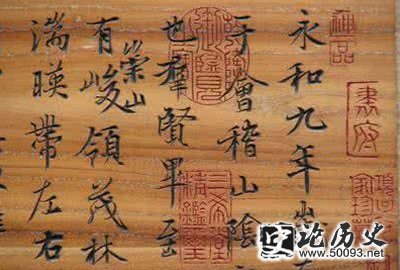 神品
永和九年歲在
于會稽山陰
也羣賢畢至
有崇山峻領茂林
湍暎帶左右
三希堂
精鑑璽
论历史
www.50093.net